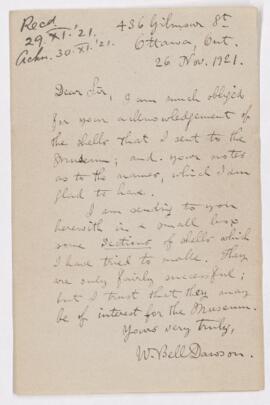 Recd
29.XI.'21.
Ackn. 30.XI.'21.
436 Gilmour St.
Ottawa, Ont.
26 Nov. 1921.
Dear Sir, I am much obliged
for your acknowledgement of
the shells that I sent to the
Museum; and your notes
as to the names, which I am
glad to have.
I am sending to you
herewith in a small box
some sections of shells which
I have tried to make. They
are only fairly successful;
but I trust that they may
be of interest for the Museum.
Yours very truly,
W. Bell Dawson.